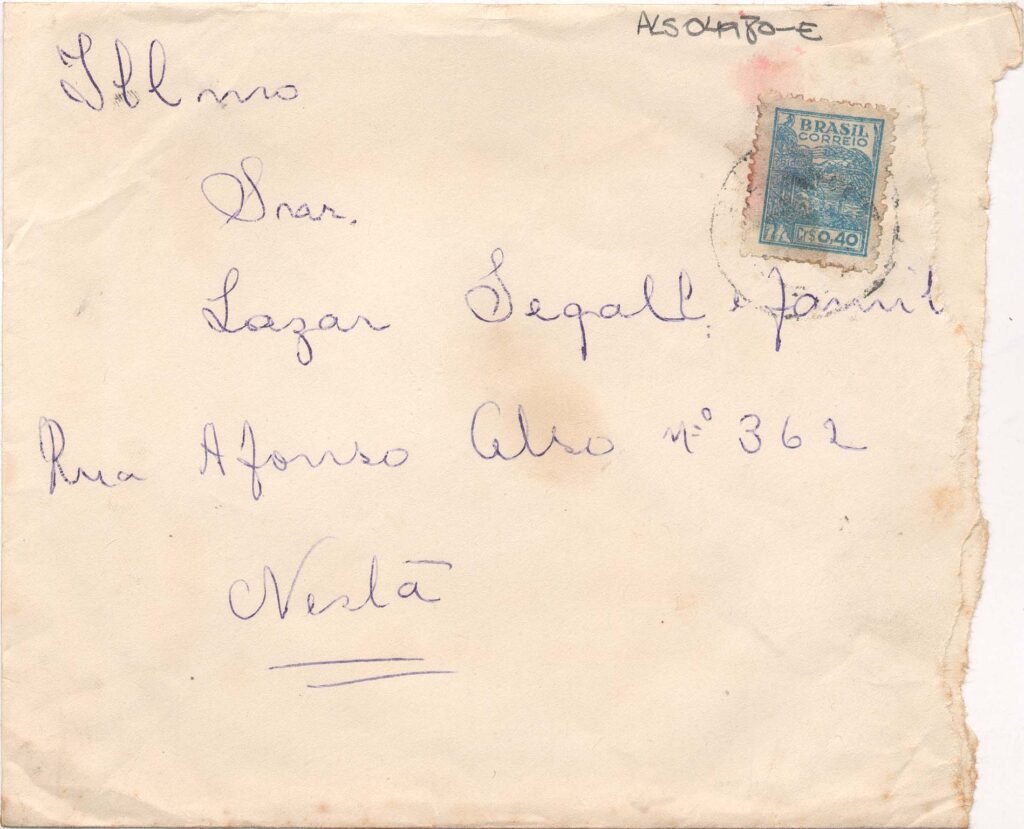 ALS 04980-E
Illmo
BRASIL
CORREIO
CR$ 0,40
Snar.
Lazar Segall e Famil
Rua Afonso Celso n.º 362
Nestā